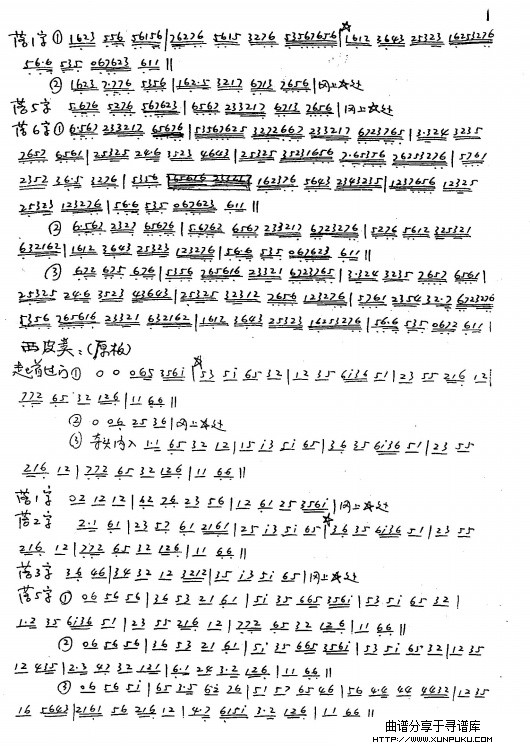 1
落1字 ① 1623 556 56156 | 76276 5615 3276 53567656 | 1612 3643 25323 16253276
56·6 535 067623 611 ||
② 1623 7·776 5356 | 162·5 3217 6713 7656 | 同上☆处
落5字 5·676 5276 567623 | 6567 233217 6713 7656 | 同上☆处
落6字 ① 6·567 233217 65676 | 53567625 3272667 233217 6723765 | 3·324 3235
7657 6561 | 25325 24·6 3523 4643 | 25325 35231656 7·65356 76253276 | 5761
2352 36·5 3276 | 5356 162376 5643 2343235 | 1237656 12325
25323 123276 | 56·6 535 067623 611 ||
② 6·563 2327 65676 | 56763 6567 233217 6723276 | 5276 5612 325321
632162 | 1612 3643 25323 123276 | 56·6 535 067623 611 ||
③ 672 675 676 | 5356 765616 23321 6723765 | 3·324 3235 7657 6561 |
25325 24·6 3523 43643 | 25325 32312 7656 123276 | 5761 2354 32·7 6723276
5356 765616 23321 632162 | 1612 3643 25323 16253276 | 56·6 535 0672 611 |
西皮类:(原板)
起唱过门 ① 0 0 065 356i | 53 5i 65 32 | 12 35 6i36 51 | 23 55 216 12 |
772 65 32 126 | 11 66 ||
② 0 06 25 36 | 同上☆处
③ 1·1 65 32 12 | 15 i3 5i 65 | 36 35 6i36 51 | 23 55
216 12 | 772 65 32 126 | 11 66 ||
落1字 02 12 12 | 42 76 23 56 | 12 61 25 356i | 同上☆处
落2字 2·1 61 | 23 57 61 2161 | 25 i3 5i 65 | 36 35 6i36 51 | 23 55
216 12 | 772 65 32 126 | 11 66 ||
落3字 36 46 | 34 32 12 3212 | 35 i3 5i 65 | 同上☆处
落5字 ① 06 56 56 | 36 53 21 61 | 5i 35 665 356i | 53 5i 65 32 |
1·2 35 6i36 51 | 23 55 216 12 | 772 65 32 126 | 11 66 ||
② 06 56 56 | 36 53 21 61 | 5i 35 665 356i | 53 5i 65 32 | 12 35
12 435 | 2·3 43 32 121 | 6·1 24 3·2 126 | 11 66 ||
③ 06 56 5i | 65 3·5 6i 76 | 51 57 65 46 | 56 4·4 44 4432 | 12 35
16 5643 | 2161 56 216 12 | 4·7 615i 3·2 126 | 11 66 ||
曲谱分享于寻谱库
HTTP://WWW.XUNPUKU.COM